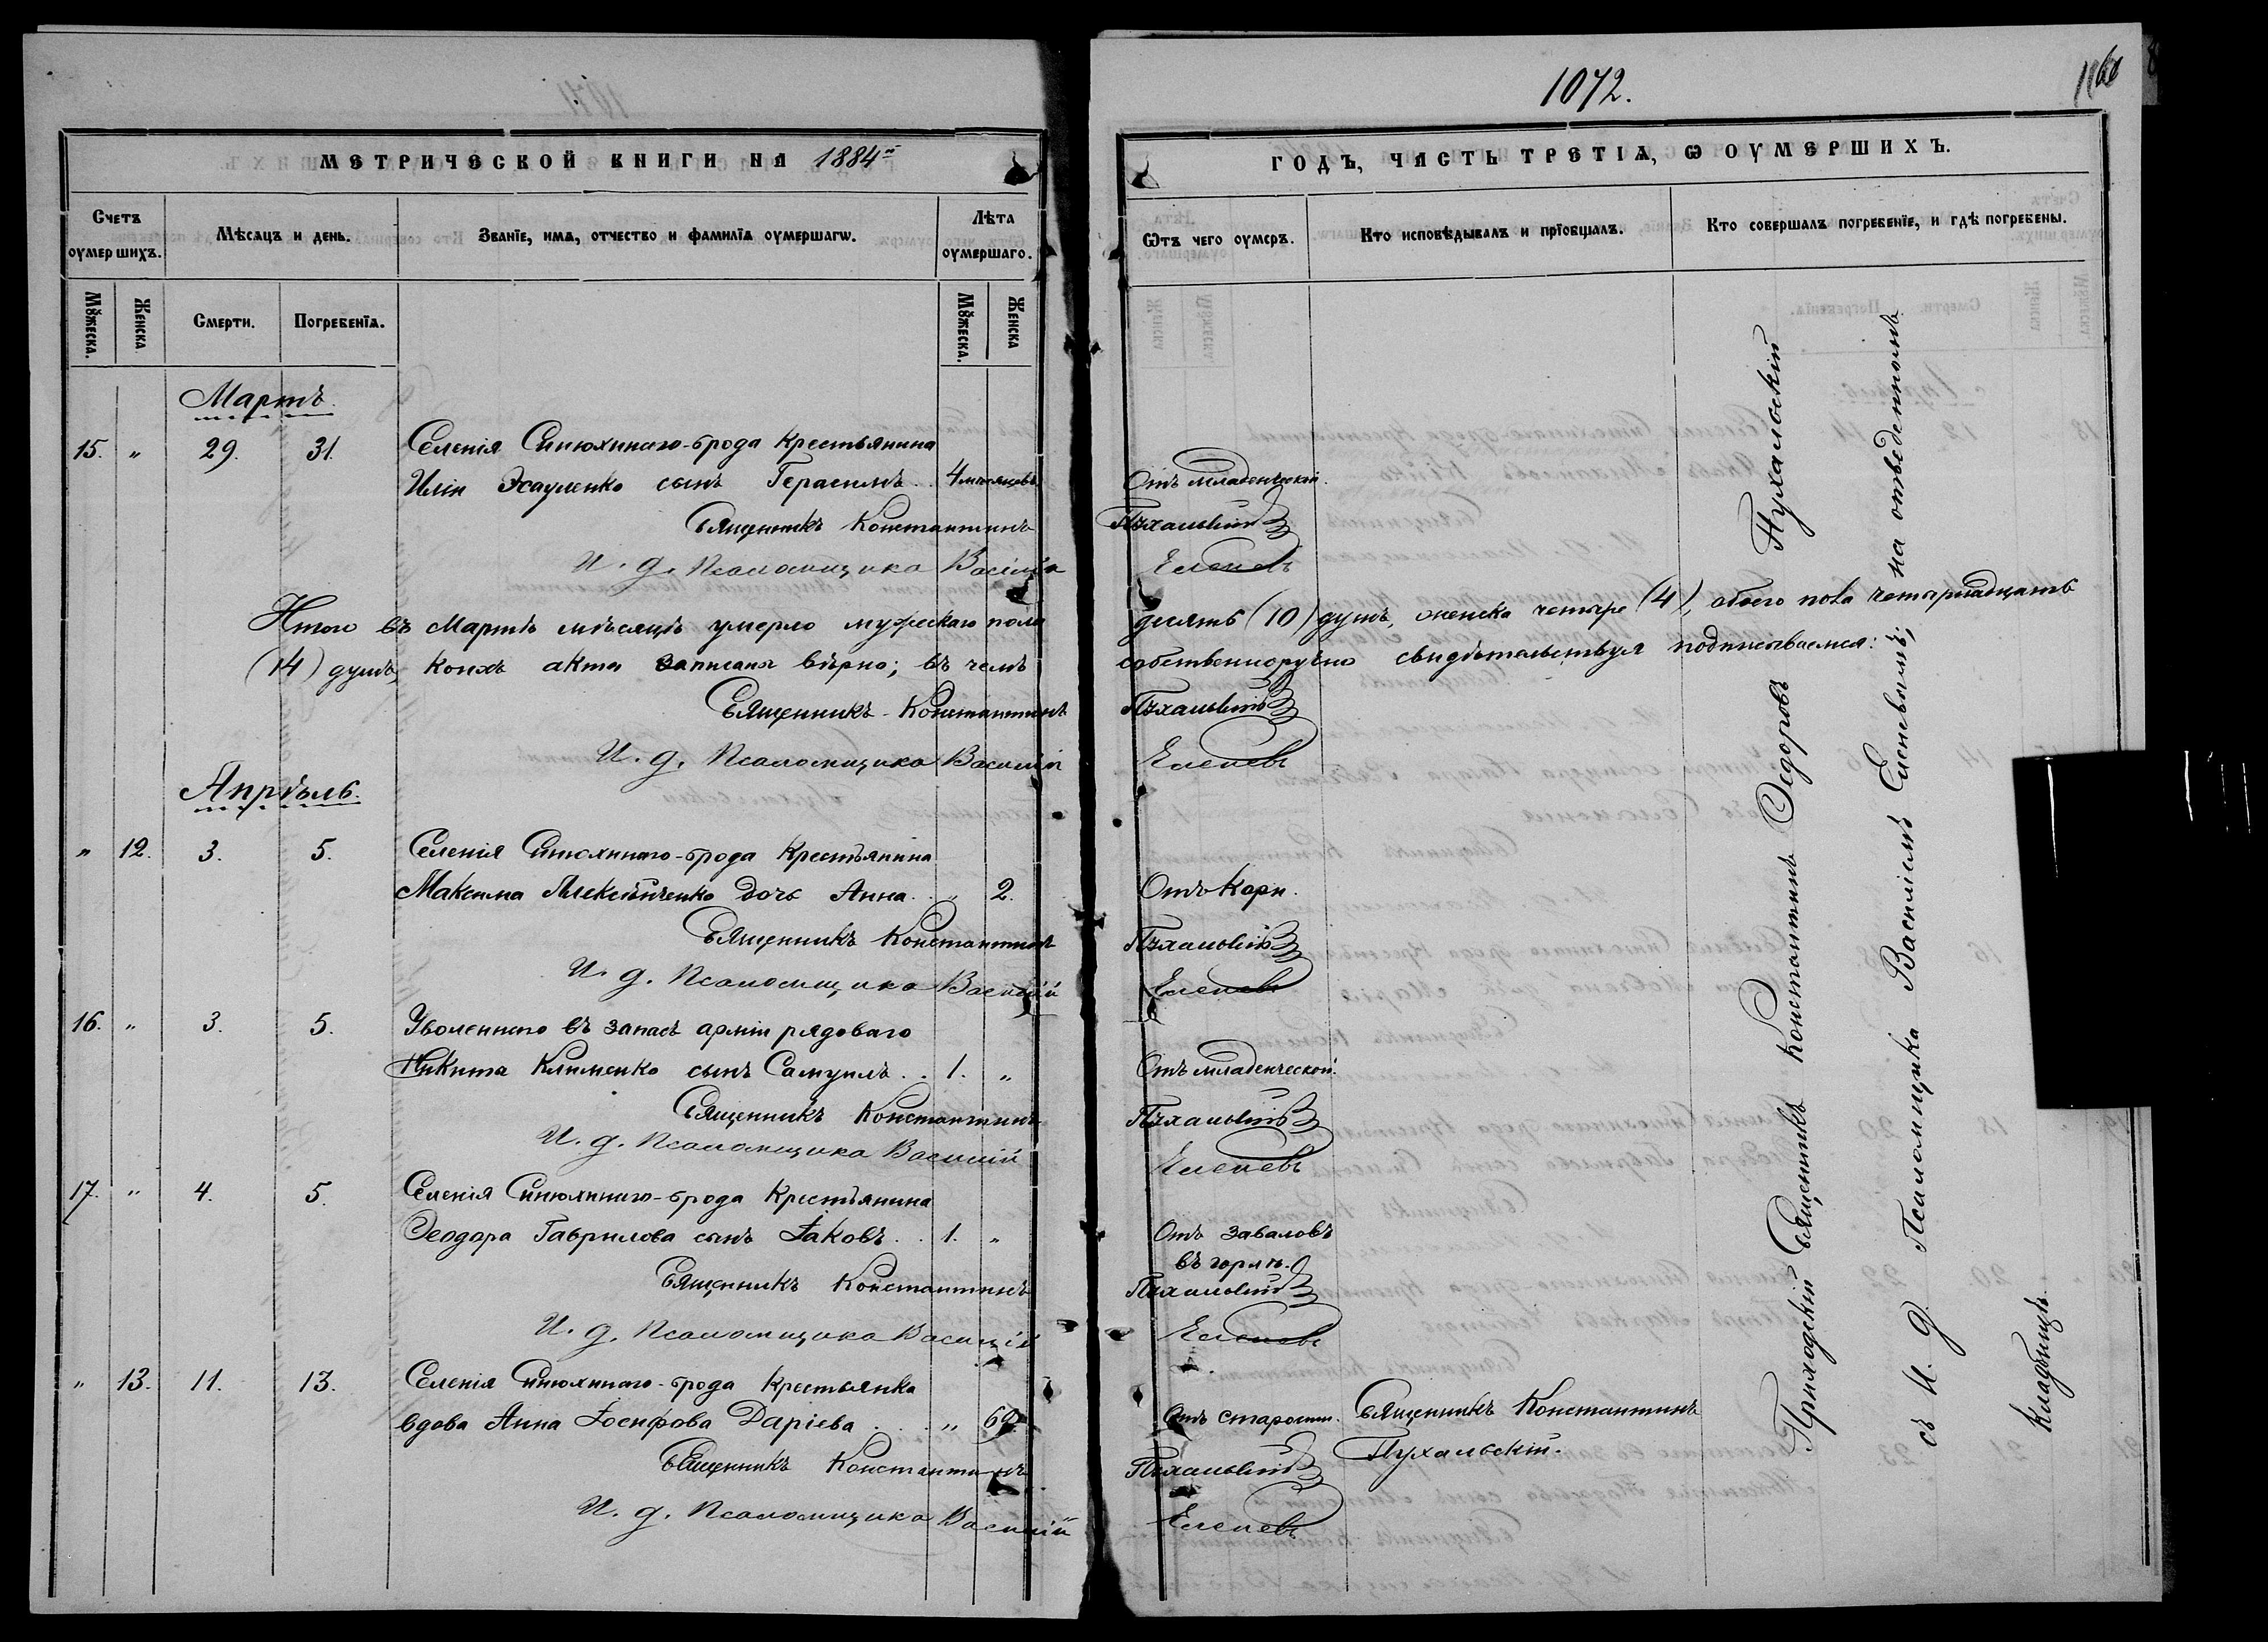 1072.
МЕТРИЧЕСКОЙ КНИГИ НА 1884й
ГОДЪ, ЧАСТЬ ТРЕТІѦ, Ѡ ОУМЕРШИХЪ.
Счетъ оумершихъ.
Мѣсяцъ и день.
Званїе, имѧ, отчество и фамилїѧ оумершагѡ.
Лѣта оумершаго.
Ѿтъ чего оумеръ.
Кто исповѣдывалъ и прїобщалъ.
Кто совершалъ погребенїе, и гдѣ погребены.
Мꙋжеска.
Женска
Смерти.
Погребенїѧ.
Мꙋжеска.
Женска
Мартъ.
15. " 29. 31. Селенія Синюхинаго-брода крестьянина
Иліи Эсауленко сынъ Герасимъ.. 4 мѣсяцевъ Отъ младенческой.
Священникъ Константинъ Пухальскій
И. д. Псаломщика Василій Еленевъ
Итого въ Мартѣ мѣсяцѣ умерло мужескаго пола десять (10) душъ, женска четыре (4), обоего пола четырнадцать
(14) душъ, коихъ акты записаны вѣрно; въ чемъ собственноручно свидѣтельствуя подписываемся:
Священникъ Константинъ Пухальскій
И. д. Псаломщика Василій Еленевъ
Апрѣль.
" 12. 3. 5. Селенія Синюхинаго-брода крестьянина
Максима Алексѣйченко дочь Анна.. " 2. Отъ кори.
Священникъ Константинъ Пухальскій
И. д. Псаломщика Василій Еленевъ
16. " 3. 5. Уволеннаго въ запасъ арміи рядоваго
Никита Клименко сынъ Самуилъ.. 1. " Отъ младенческой.
Священникъ Константинъ Пухальскій
И. д. Псаломщика Василій Еленевъ
17. " 4. 5. Селенія Синюхинаго-брода крестьянина
Ѳеодора Гаврилова сынъ Іаковъ.. 1. " Отъ заваловъ
въ горлѣ.
Священникъ Константинъ Пухальскій
И. д. Псаломщика Василій Еленевъ
" 13. 11. 13. Селенія Синюхинаго-брода крестьянка
вдова Анна Іосифова Даріева... " 69. Отъ старости. Священникъ Константинъ
Пухальскій.
Священникъ Константинъ Пухальскій
И. д. Псаломщика Василій Еленевъ
Приходскій Священникъ Константинъ Ѳедоровъ Пухальскій
съ И. д. Псаломщика Василіемъ Еленевымъ; на отведенномъ
кладбищѣ.